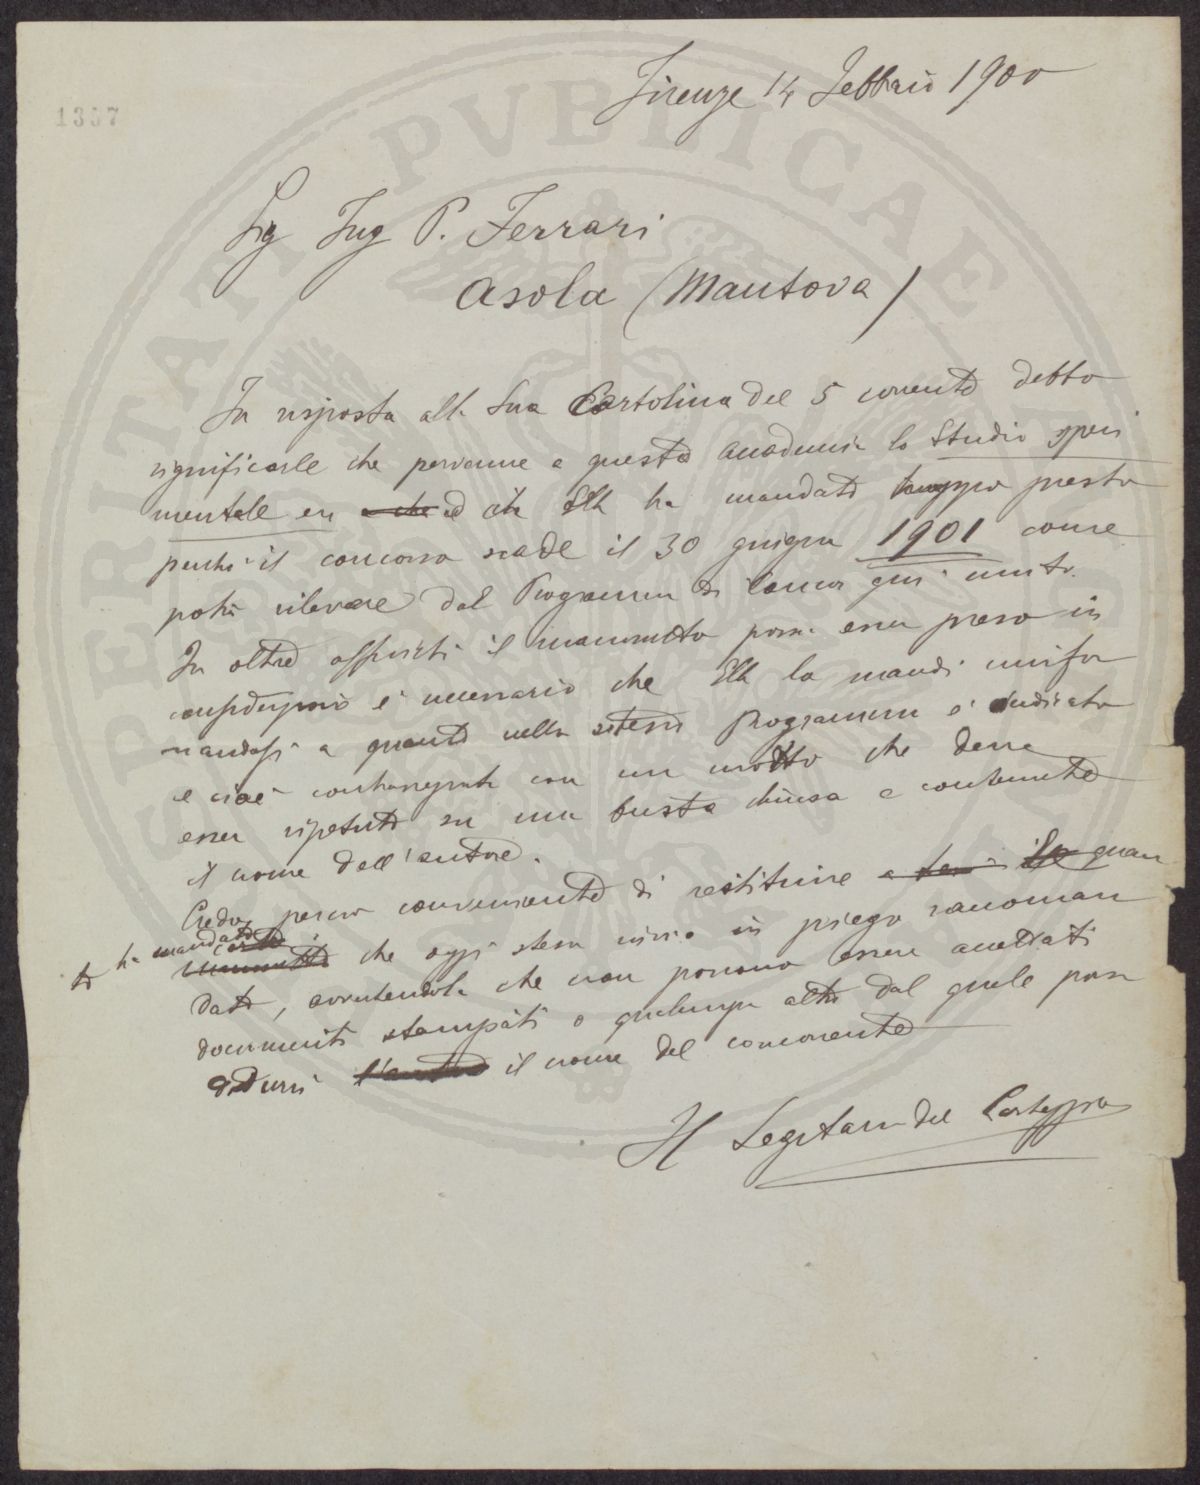 1357
Firenze 14 Febbraio 1900
Sig Ing P. Ferrari
Asola (Mantova)
In risposta alla Sua Cartolina del 5 corrente debbo
significarle che pervenne a questa Accademia lo Studio speri
mentale ecc a che ed che Ella ha mandato troppo presto
perchè il concorso scade il 30 giugno 1901 come
potrà rilevare dal Programma di Concorso qui unito.
In oltre affinchè il manoscritto possa esser preso in
considerazione è necessario che Ella lo mandi unifor
mandosi a quanto nello stesso Programma è indicato
e cioè contrassegnato con un motto che deve
esser ripetuto su una busta chiusa e contenente
il nome dell'autore.
Credo perciò conveniente di restituire a quan
to ha mandato che oggi stesso invio in piego raccoman
dato, avvertendola che non possono essere accettati
documenti stampati o qualunque altro dal quale possa
dedursi l'autore il nome del concorrente
Il Segretario del Carteggio